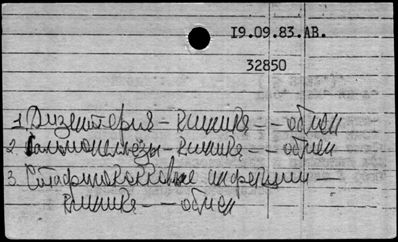 19.09.83.АВ.
32850
1. Дизентерия – клиника – – обмен
2. Сальмонелёзы – клиника – – обмен
3. Стафилококковые инфекции –
клиника – – обмен